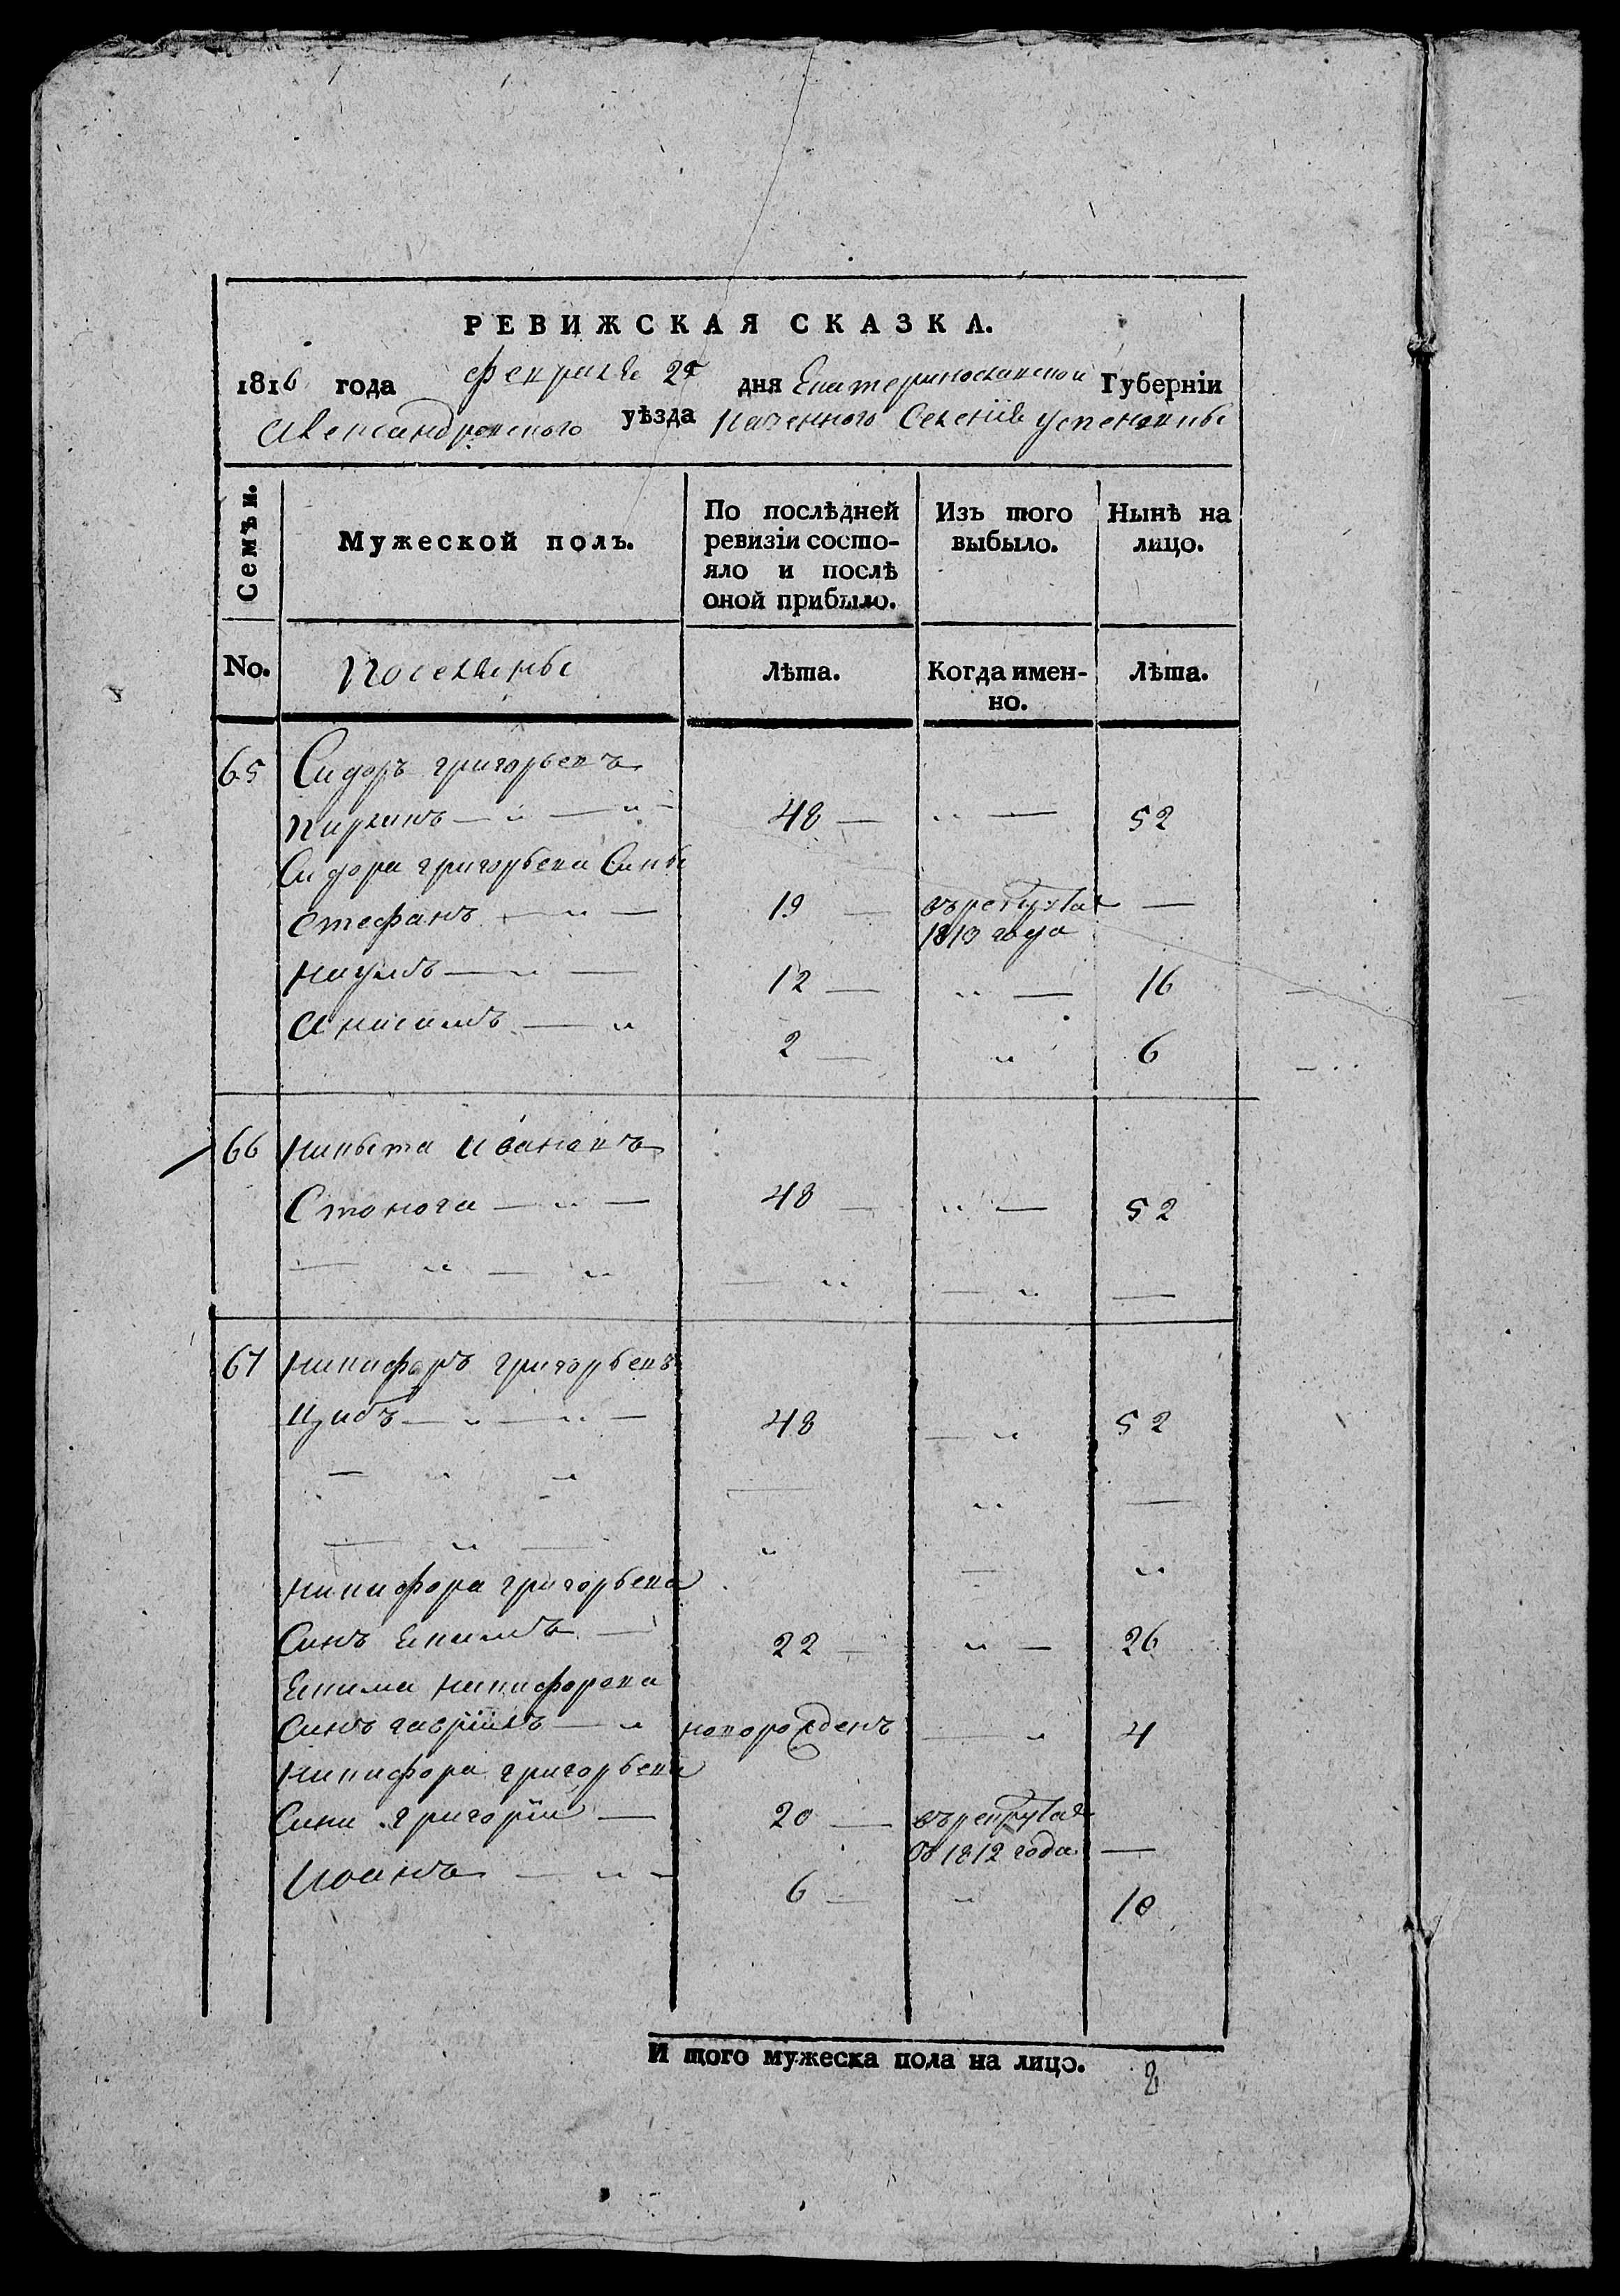 РЕВИЖСКАЯ СКАЗКА.
1816 года февраля дня Екатеринославской Губерніи
Александровского уѣзда казенного Селенія Успеновки
Семъи. Мужеской полъ. По послѣдней ревизіи состояло и послѣ оной прибыло. Изъ того выбыло. Нынѣ на лицо.
No. Поселяны Лѣта. Когда имен-но. Лѣта.
65 Сидоръ григорьевъ
48 — „ — 52
Сидора григорьева Сины
Стефанъ — „ — 19 — въ рекрутах —
1813 года
Наумъ — „ — 12 — „ — 16
Анисимъ — „ 2 — „ 6
66 Никита Ивановъ
Стонога — „ — 48 — „ — 52
— „ — „ — „ — „ —
67 Никифоръ григорьевъ
Цибъ — „ — „ — 48 — „ 52
— „ „ — „ —
— „ — „ — „
Никифора григорьева
Синъ Екимъ — 22 — „ — 26
Екима Никифорова
Синъ гавріилъ — „ новорожденъ — „ 4
Никифора григорьева
Сини григорій — 20 — въ рекрутах
1812 года —
Иванъ — „ — 6 — „ 10
И того мужеска пола на лицо. 8